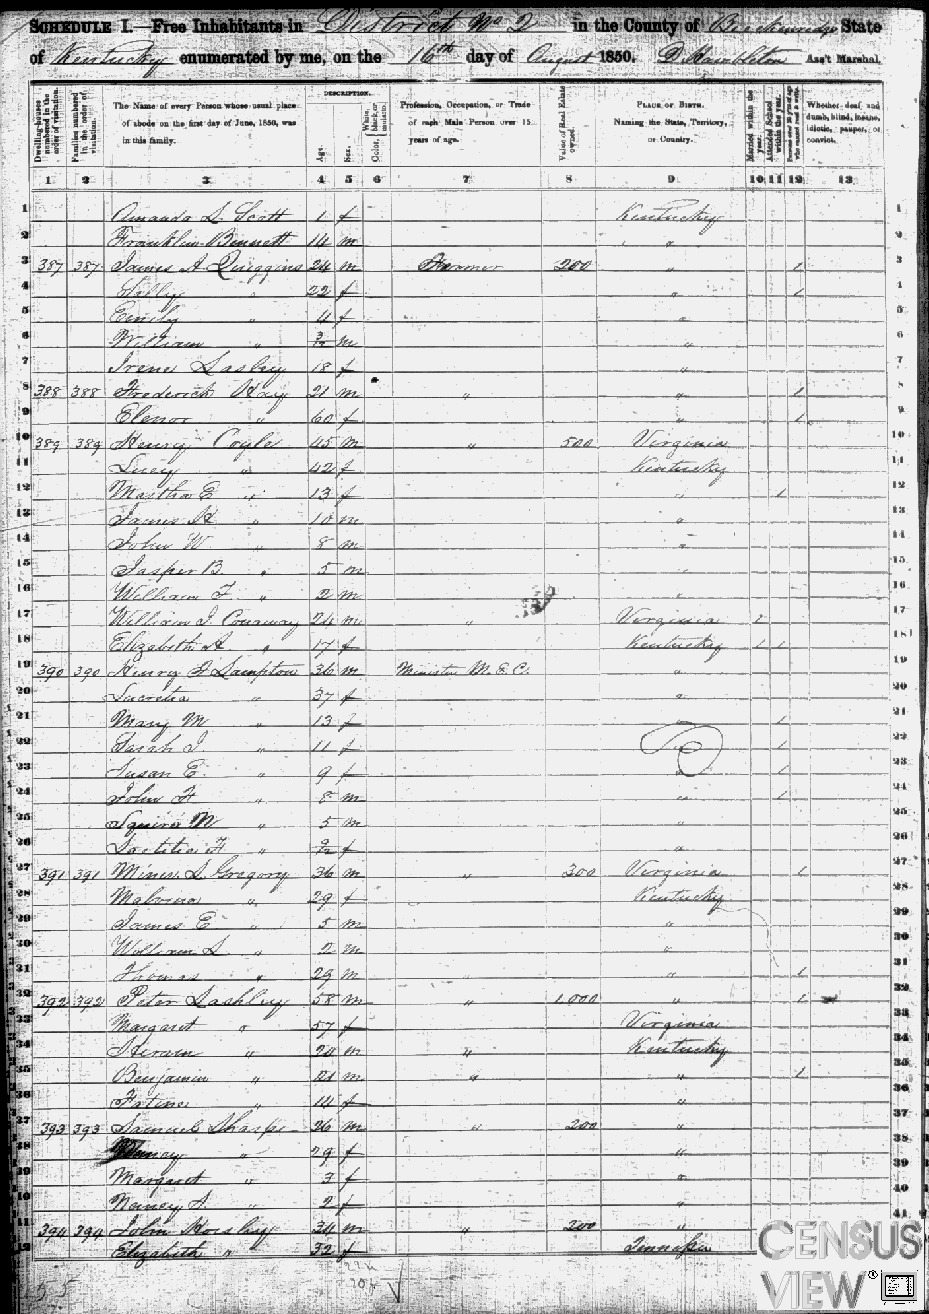 SCHEDULE I.—Free Inhabitants in District No 2 in the County of Breckenridge State
of Kentucky enumerated by me, on the 16th day of August 1850. D Hambleton Ass't Marshal.
Dwelling-houses numbered in the order of visitation.
Families numbered in the order of visitation.
The Name of every Person whose usual place of abode on the first day of June, 1850, was in this family.
DESCRIPTION.
Age.
Sex.
Color, White, black, or mulatto.
Profession, Occupation, or Trade of each Male Person over 15 years of age.
Value of Real Estate owned.
PLACE OF BIRTH. Naming the State, Territory, or Country.
Married within the year.
Attended School within the year.
Persons over 20 years of age who cannot read & write.
Whether deaf and dumb, blind, insane, idiotic, pauper, or convict.
1 2 3 4 5 6 7 8 9 10 11 12 13
1 Amanda L. Scott 1 f Kentucky 1
2 Franklin Bennett 14 m " 2
3 387 387 James A Quiggins 24 m Farmer 200 " 1 3
4 " 22 f " 1 4
5 Emily " 4 f " 5
6 William " m " 6
7 Irene Lasley 18 f " 7
8 388 388 Frederick 21 m " " 1 8
9 Elenor " 60 f " 1 9
10 389 389 Henry Coyle 45 m " 500 Virginia 10
11 Lucy " 42 f Kentucky 11
12 Martha E " 13 f " 1 12
13 James H " 10 m " 13
14 John W " 8 m " 14
15 Jasper B " 5 m " 15
16 William F. " 2 m " 16
17 William J. Conaway 24 m " Virginia 1 17
18 Elizabeth A " 17 f Kentucky 1 1 18
19 390 390 Henry J Lampton 36 m Minister M. E. C. " 19
20 Lucretia " 37 f " 20
21 Mary M " 13 f " 1 21
22 Sarah J. " 11 f " 1 22
23 Susan E. " 9 f " 1 23
24 John H " 8 m " 1 24
25 Squire W " 5 m " 25
26 Laetitia F " f " 26
27 391 391 L Gregory 36 m " 300 Virginia 1 27
28 Malvina " 29 f Kentucky 28
29 James E. " 5 m " 29
30 William L " 2 m " 30
31 Thomas " 29 m " 1 31
32 392 392 Peter Lashley 58 m " 1000 " 1 32
33 Margaret " 57 f Virginia 33
34 Hiram " 24 m " Kentucky 34
35 Benjamin " 21 m " " 1 35
36 " 14 f " 36
37 393 393 Samuel Sharpe 26 m " 200 " 37
38 Nancy " 29 f " 38
39 Margaret " 3 f " 39
40 Nancy A. " 2 f " 40
41 394 394 John 34 m " 200 " 41
42 Elizabeth " 32 f Tennessee
CENSUS
VIEW®